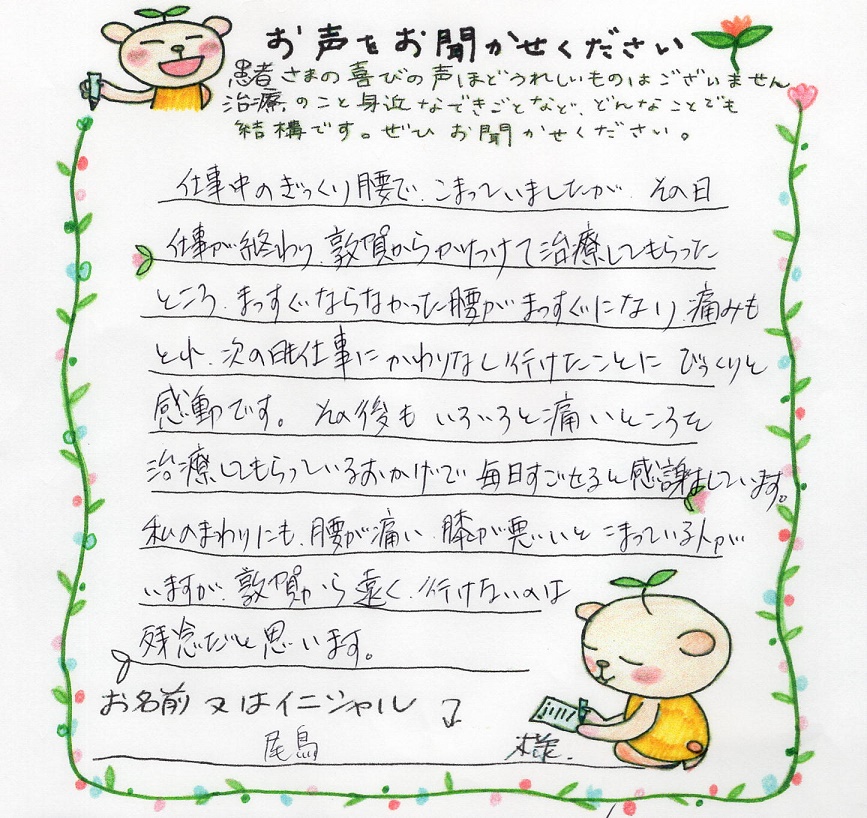 お声をお聞かせください
患者さまの喜びの声ほどうれしいものはございません
治療のこと身近なできごとなど、どんなことでも
結構です。ぜひ お聞かせください。
仕事中のぎっくり腰で、こまっていましたが、その日
仕事が終わり、敦賀からかけつけて治療してもらった
ところ、まっすぐならなかった腰がまっすぐになり、痛みも
とれ、次の日も仕事にかわりなし行けたことに びっくりと
感動です。その後も いろいろと痛いところを
治療してもらっているおかげで 毎日すごせると感謝しています。
私のまわりにも、腰が痛い、膝が悪いと こまっている人が
いますが、敦賀から遠く、行けないのは
残念だと思います。
お名前 又はイニシャル
尾鳥 様